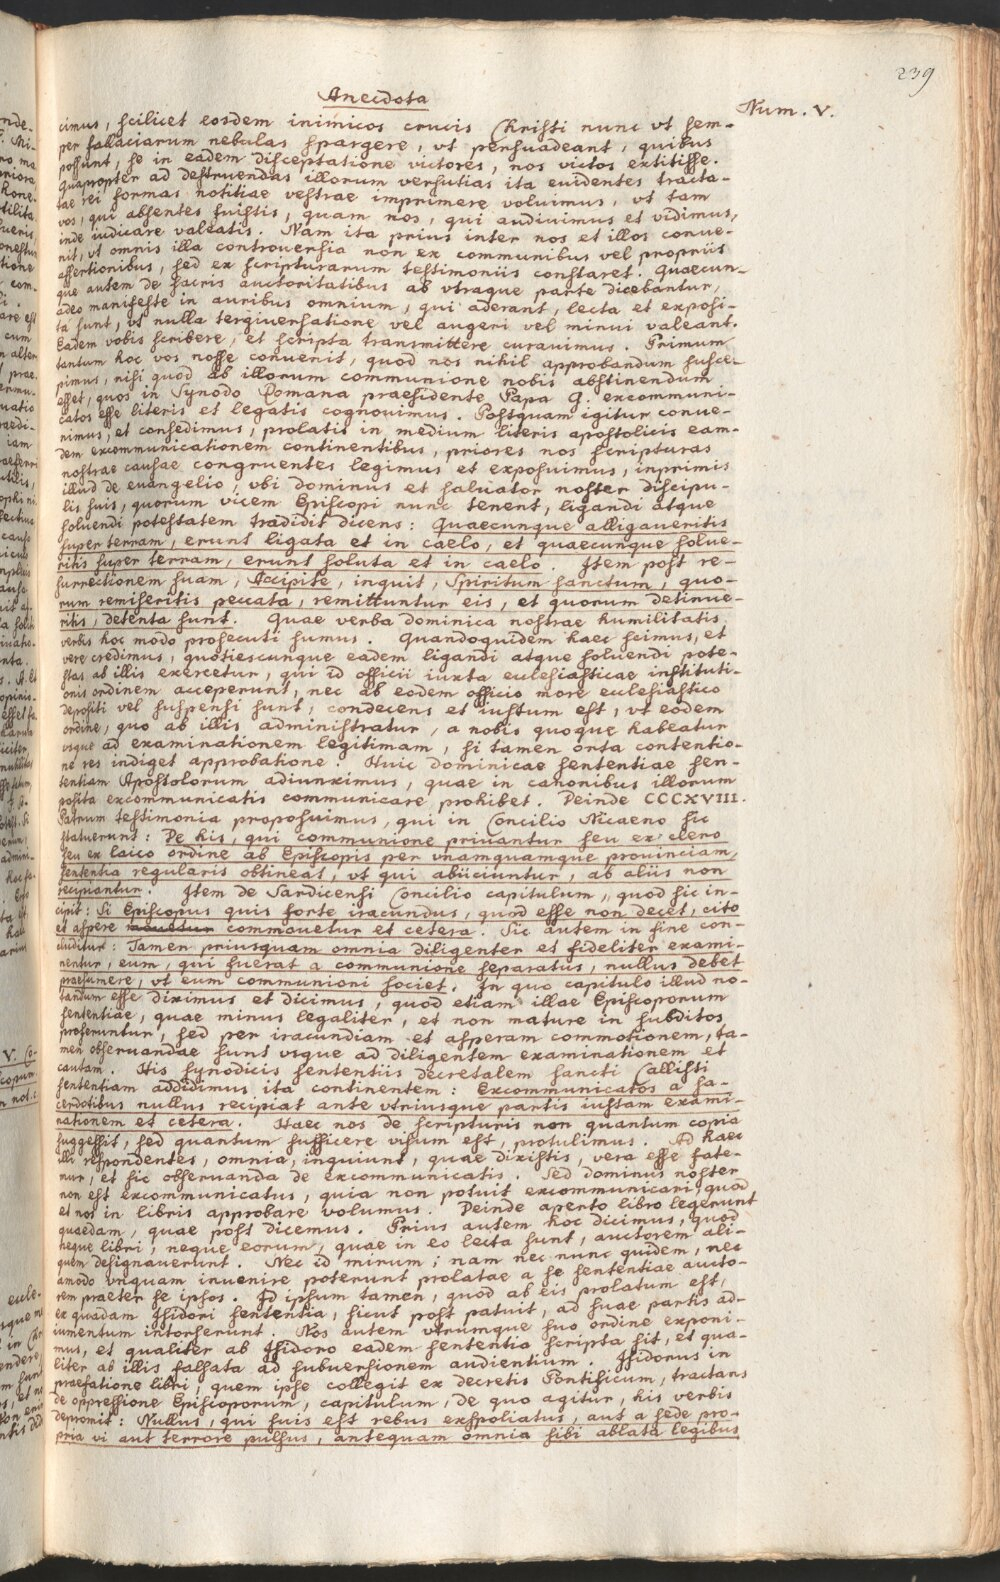 239
Anecdota
Num. V.
cimus, scilicet eosdem inimicos crucis Christi nunc vt sem-
per fallaciarum nebulas spargere, vt persuadeant, quibus
possunt, se in eadem disceptatione victores, nos victos extitisse.
Quapropter ad destruendas illorum versutias ita euidentes tracta-
tae rei formas notitiae vestrae imprimere voluimus, vt tam
vos, qui absentes fuistis, quam nos, qui audiuimus et vidimus,
inde iudicare valeatis. Nam ita prius inter nos et illos conue-
nit, vt omnis illa controuersia non ex communibus vel propriis
assertionibus, sed ex scripturarum testimoniis constaret. Quaecun-
que autem de sacris auctoritatibus ab vtraque parte dicebantur,
adeo manifeste in auribus omnium, qui aderant, lecta et exposi-
ta sunt, vt nulla tergiuersatione vel augeri vel minui valeant.
Eadem vobis scribere, et scripta transmittere curauimus. Primum
tantum hoc vos nosse conuenit, quod nos nihil approbandum susce-
pimus, nisi quod ab illorum communione nobis abstinendum
esset, quos in Synodo Romana praesidente Papa G. excommuni-
catos esse literis et legatis cognouimus. Postquam igitur conue-
nimus, et consedimus, prolatis in medium literis apostolicis eam-
dem excommunicationem continentibus, priores nos scripturas
nostrae causae congruentes legimus et exposuimus, inprimis
illud de euangelio, vbi dominus et saluator noster discipu-
lis suis, quorum vicem Episcopi nunc tenent, ligandi atque
soluendi potestatem tradidit dicens: Quaecunque alligaueritis
super terram, erunt ligata et in caelo, et quaecunque solue-
ritis super terram, erunt soluta et in caelo. Item post re-
surrectionem suam, Accipite, inquit, Spiritum sanctum, quo-
rum remiseritis peccata, remittuntur eis, et quorum detinue-
ritis, detenta sunt. Quae verba dominica nostrae humilitatis
verbis hoc modo prosecuti sumus. Quandoquidem haec scimus, et
vere credimus, quotiescunque eadem ligandi atque soluendi pote-
stas ab illis exercetur, qui id officii iuxta ecclesiasticae instituti-
onis ordinem acceperunt, nec ab eodem officio more ecclesiastico
depositi vel suspensi sunt, condecens et iustum est, vt eodem
ordine, quo ab illis administratur, a nobis quoque habeatur
vsque ad examinationem legitimam, si tamen orta contentio-
ne res indiget approbatione. Huic dominicae sententiae sen-
tentiam Apostolorum adiunximus, quae in canonibus illorum
posita excommunicatis communicare prohibet. Deinde CCCXVIII.
Patrum testimonia proposuimus, qui in Concilio Nicaeno sic
statuerunt: De his, qui communione priuantur seu ex clero
seu ex laico ordine ab Episcopis per vnamquamque prouinciam,
sententia regularis obtineat, vt qui abiiciuntur, ab aliis non
recipiantur. Item de Sardicensi Concilio capitulum, quod sic in-
cipit: Si Episcopus quis forte iracundus, quod esse non decet, cito
et aspere mouetur commouetur et cetera. Sic autem in fine con-
cluditur: Tamen priusquam omnia diligenter et fideliter exami-
nentur, eum, qui fuerat a communione separatus, nullus debet
praesumere, vt eum communioni societ. In quo capitulo illud no-
tandum esse diximus et dicimus, quod etiam illae Episcoporum
sententiae, quae minus legaliter, et non mature in subditos
proferuntur, sed per iracundiam et asperam commotionem, ta-
men obseruandae sunt vsque ad diligentem examinationem et
cautam. His synodicis sententiis decretalem sancti Callisti
sententiam addidimus ita continentem: Excommunicatos a sa-
cerdotibus nullus recipiat ante vtriusque partis iustam exami-
nationem et cetera. Haec nos de scripturis non quantum copia
suggessit, sed quantum sufficere visum est, protulimus. Ad haec
illi respondentes, omnia, inquiunt, quae dixistis, vera esse fate-
mur, et sic obseruanda de excommunicatis. Sed dominus noster
non est excommunicatus, quia non potuit excommunicari, quod
et nos in libris approbare volumus. Deinde aperto libro legerunt
quaedam, quae post dicemus. Prius autem hoc dicimus, quod
neque libri, neque eorum, quae in eo lecta sunt, auctorem ali-
quem designauerunt. Nec id mirum; nam nec nunc quidem, nec
amodo vnquam inuenire poterunt prolatae a se sententiae aucto-
rem praeter se ipsos. Id ipsum tamen, quod ab eis prolatum est,
ex quadam Isidori sententia, sicut post patuit, ad suae partis ad-
iumentum intorserunt. Nos autem vtrumque suo ordine exponi-
mus, et qualiter ab Isidoro eadem sententia scripta sit, et qua-
liter ab illis falsata ad subuersionem audientium. Isidorus in
praefatione libri, quem ipse collegit ex decretis Pontificum, tractans
de oppressione Episcoporum, capitulum, de quo agitur, his verbis
depromit: Nullus, qui suis est rebus exspoliatus, aut a sede pro-
pria vi aut terrore pulsus, antequam omnia sibi ablata legibus